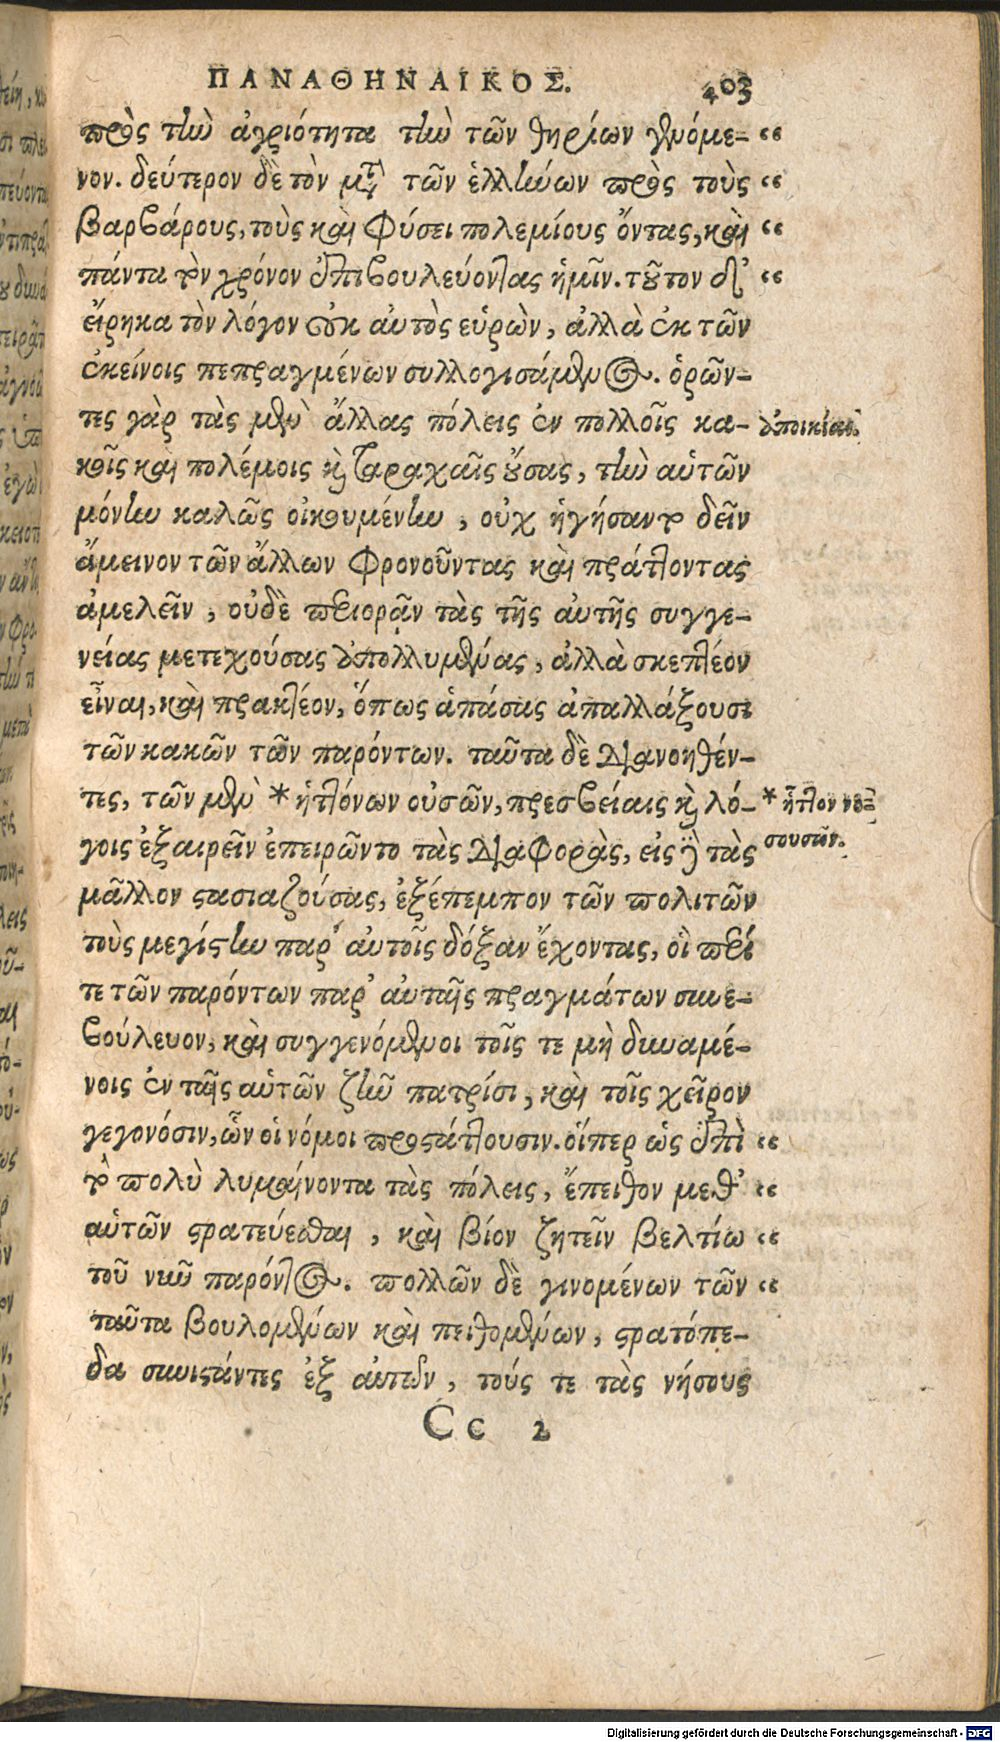 ΠΑΝΑΘΗΝΑΙΚΟΣ. 403
πρὸς τὴν ἀγριότητα τὴν τῶν θηρίων γινόμε- “
νον. δεύτερον δὲ τὸν μετὰ τῶν ἑλλήνων πρὸς τοὺς “
βαρβάρους, τοὺς καὶ φύσει πολεμίους ὄντας, καὶ “
πάντα τὸν χρόνον ἐπιβουλεύοντας ἡμῖν. τοῦτον δ' “
εἴρηκα τὸν λόγον οὐκ αὐτὸς εὑρὼν, ἀλλὰ ἐκ τῶν
ἐκείνοις πεπραγμένων συλλογισάμενος. ὁρῶν-
τες γὰρ τὰς μὲν ἄλλας πόλεις ἐν πολλοῖς κα- ἀποικίαι.
κοῖς καὶ πολέμοις καὶ ταραχαῖς οὔσας, τὴν αὑτῶν
μόνην καλῶς οἰκουμένην, οὐχ ἡγήσαντο δεῖν
ἄμεινον τῶν ἄλλων φρονοῦντας καὶ πράττοντας
ἀμελεῖν, οὐδὲ περιορᾷν τὰς τῆς αὐτῆς συγγε-
νείας μετεχούσας ἀπολλυμένας, ἀλλὰ σκεπτέον
εἶναι, καὶ πρακτέον, ὅπως ἁπάσας ἀπαλλάξουσι
τῶν κακῶν τῶν παρόντων. ταῦτα δὲ διανοηθέν-
τες, τῶν μὲν * ἡττόνων οὐσῶν, πρεσβείαις καὶ λό- * ἧττον νο-
γοις ἐξαιρεῖν ἐπειρῶντο τὰς διαφορὰς, εἰς δὲ τὰς σουσῶν.
μᾶλλον στασιαζούσας, ἐξέπεμπον τῶν πολιτῶν
τοὺς μεγίστην παρ' αὐτοῖς δόξαν ἔχοντας, οἳ περί
τε τῶν παρόντων παρ' αὐταῖς πραγμάτων συνε-
βούλευον, καὶ συγγενόμενοι τοῖς τε μὴ δυναμέ-
νοις ἐν ταῖς αὑτῶν ζῆν πατρίσι, καὶ τοῖς χεῖρον
γεγονόσιν, ὧν οἱ νόμοι προστάττουσιν. οἵπερ ὡς ἐπὶ “
τὸ πολὺ λυμαίνονται τὰς πόλεις, ἔπειθον μεθ' “
αὑτῶν στρατεύεσθαι, καὶ βίον ζητεῖν βελτίω “
τοῦ νῦν παρόντος. πολλῶν δὲ γινομένων τῶν “
ταῦτα βουλομένων καὶ πειθομένων, στρατόπε-
δα συνιστάντες ἐξ αὐτῶν, τούς τε τὰς νήσους
Cc 2
Digitalisierung gefördert durch die Deutsche Forschungsgemeinschaft - DFG